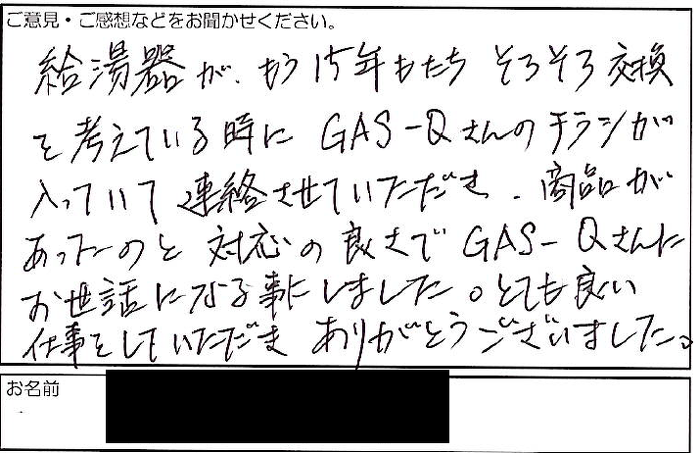 ご意見・ご感想などをお聞かせください。
給湯器が、もう15年もたち そろそろ交換
を考えている時に GAS-Qさんのチラシが
入っていて 連絡させていただき、商品が
あったのと 対応の良さで GAS-Qさんに
お世話になる事にしました。とても良い
仕事をしていただき ありがとうございました。
お名前